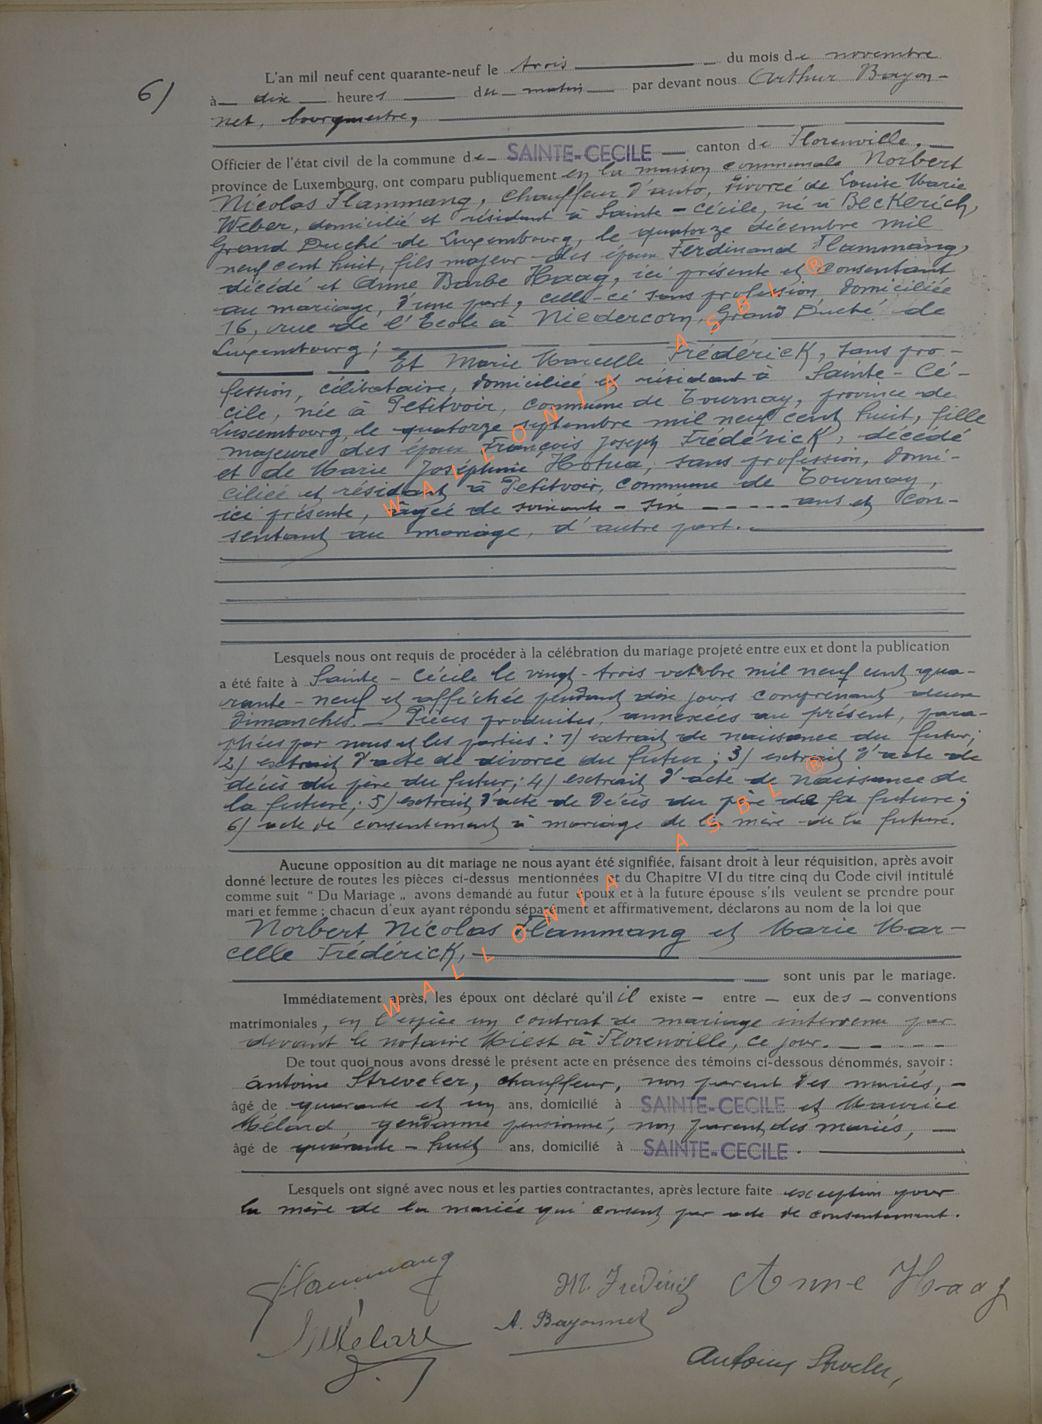 6)
L'an mil neuf cent quarante-neuf le trois du mois de novembre
à dix heures du matin par devant nous Arthur Bayon-
net, bourgmestre,
Officier de l'état civil de la commune de SAINTE-CECILE canton de Florenville,
province de Luxembourg, ont comparu publiquement en la maison communale Norbert
Nicolas Flammang, chauffeur d'auto, divorcé de Louise Marie
Weber, domicilié et résidant à Sainte-Cécile, né à Beckerich,
Grand Duché de Luxembourg, le quatorze décembre mil
neuf cent huit, fils majeur des époux Ferdinand Flammang,
décédé et Anne Barbe Haag, ici présente et consentant
au mariage, d'une part, celle-ci sans profession, domiciliée
16, rue de l'Ecole à Niedercorn, Grand Duché de
Luxembourg;
Et Marie Marcelle Frédérick, sans pro-
fession, célibataire, domiciliée et résidant à Sainte-Cé-
cile, née à Petitvoir, commune de Tournay, province de
Luxembourg, le quatorze septembre mil neuf cent huit, fille
majeure des époux François Joseph Frédérick, décédé
et de Marie Joséphine Hotua, sans profession, domi-
ciliée et résidant à Petitvoir, commune de Tournay,
ici présente, âgée de soixante-six ans et con-
sentant au mariage, d'autre part.
Lesquels nous ont requis de procéder à la célébration du mariage projeté entre eux et dont la publication
a été faite à Sainte-Cécile le vingt-trois octobre mil neuf cent qua-
rante-neuf et affichée pendant dix jours comprenant deux
dimanches. Pièces produites, annexées au présent, para-
phées par nous et les parties: 1) extrait de naissance du futur;
2) extrait d'acte de divorce du futur; 3) extrait d'acte de
décès du père du futur; 4) extrait d'acte de naissance de
la future; 5) extrait d'acte de décès du père de la future;
6) acte de consentement à mariage de la mère de la future.
Aucune opposition au dit mariage ne nous ayant été signifiée, faisant droit à leur réquisition, après avoir
donné lecture de toutes les pièces ci-dessus mentionnées et du Chapitre VI du titre cinq du Code civil intitulé
comme suit " Du Mariage „ avons demandé au futur époux et à la future épouse s'ils veulent se prendre pour
mari et femme ; chacun d'eux ayant répondu séparément et affirmativement, déclarons au nom de la loi que
Norbert Nicolas Flammang et Marie Mar-
celle Frédérick,
sont unis par le mariage.
Immédiatement après, les époux ont déclaré qu'il existe entre eux des conventions
matrimoniales, en l'espèce un contrat de mariage intervenu par
devant le notaire à Florenville, ce jour.
De tout quoi nous avons dressé le présent acte en présence des témoins ci-dessous dénommés, savoir :
Antoine Streveler, chauffeur, non parent des mariés,
âgé de quarante et un ans, domicilié à SAINTE-CECILE et Maurice
Mélard, gendarme pensionné, non parent des mariés,
âgé de quarante-huit ans, domicilié à SAINTE-CECILE.
Lesquels ont signé avec nous et les parties contractantes, après lecture faite exception pour
la mère de la mariée qui consent par acte de consentement.
Flammang
M. Frédérick
Anne Haag
Mélard
A. Bayonnet
Antoine Streveler,
WALLONIA ASBL ®
WALLONIA ASBL ®